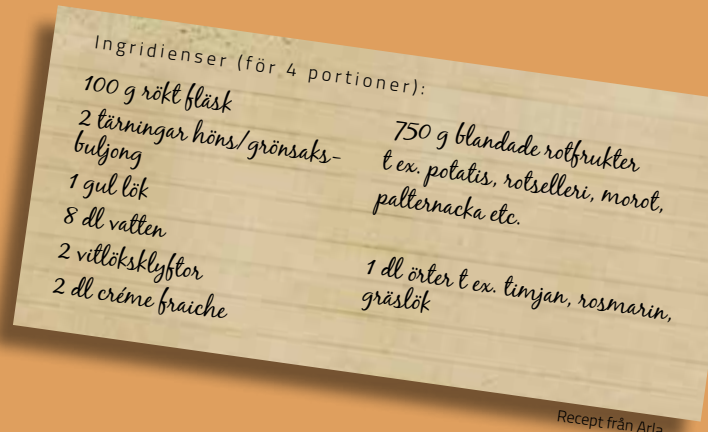 Ingridienser (för 4 portioner):
100 g rökt fläsk
2 tärningar höns/grönsaks-
buljong
1 gul lök
8 dl vatten
2 vitlöksklyftor
2 dl créme fraiche
750 g blandade rotfrukter
t ex. potatis, rotselleri, morot,
palternacka etc.
1 dl örter t ex. timjan, rosmarin,
gräslök
Recept från Arla